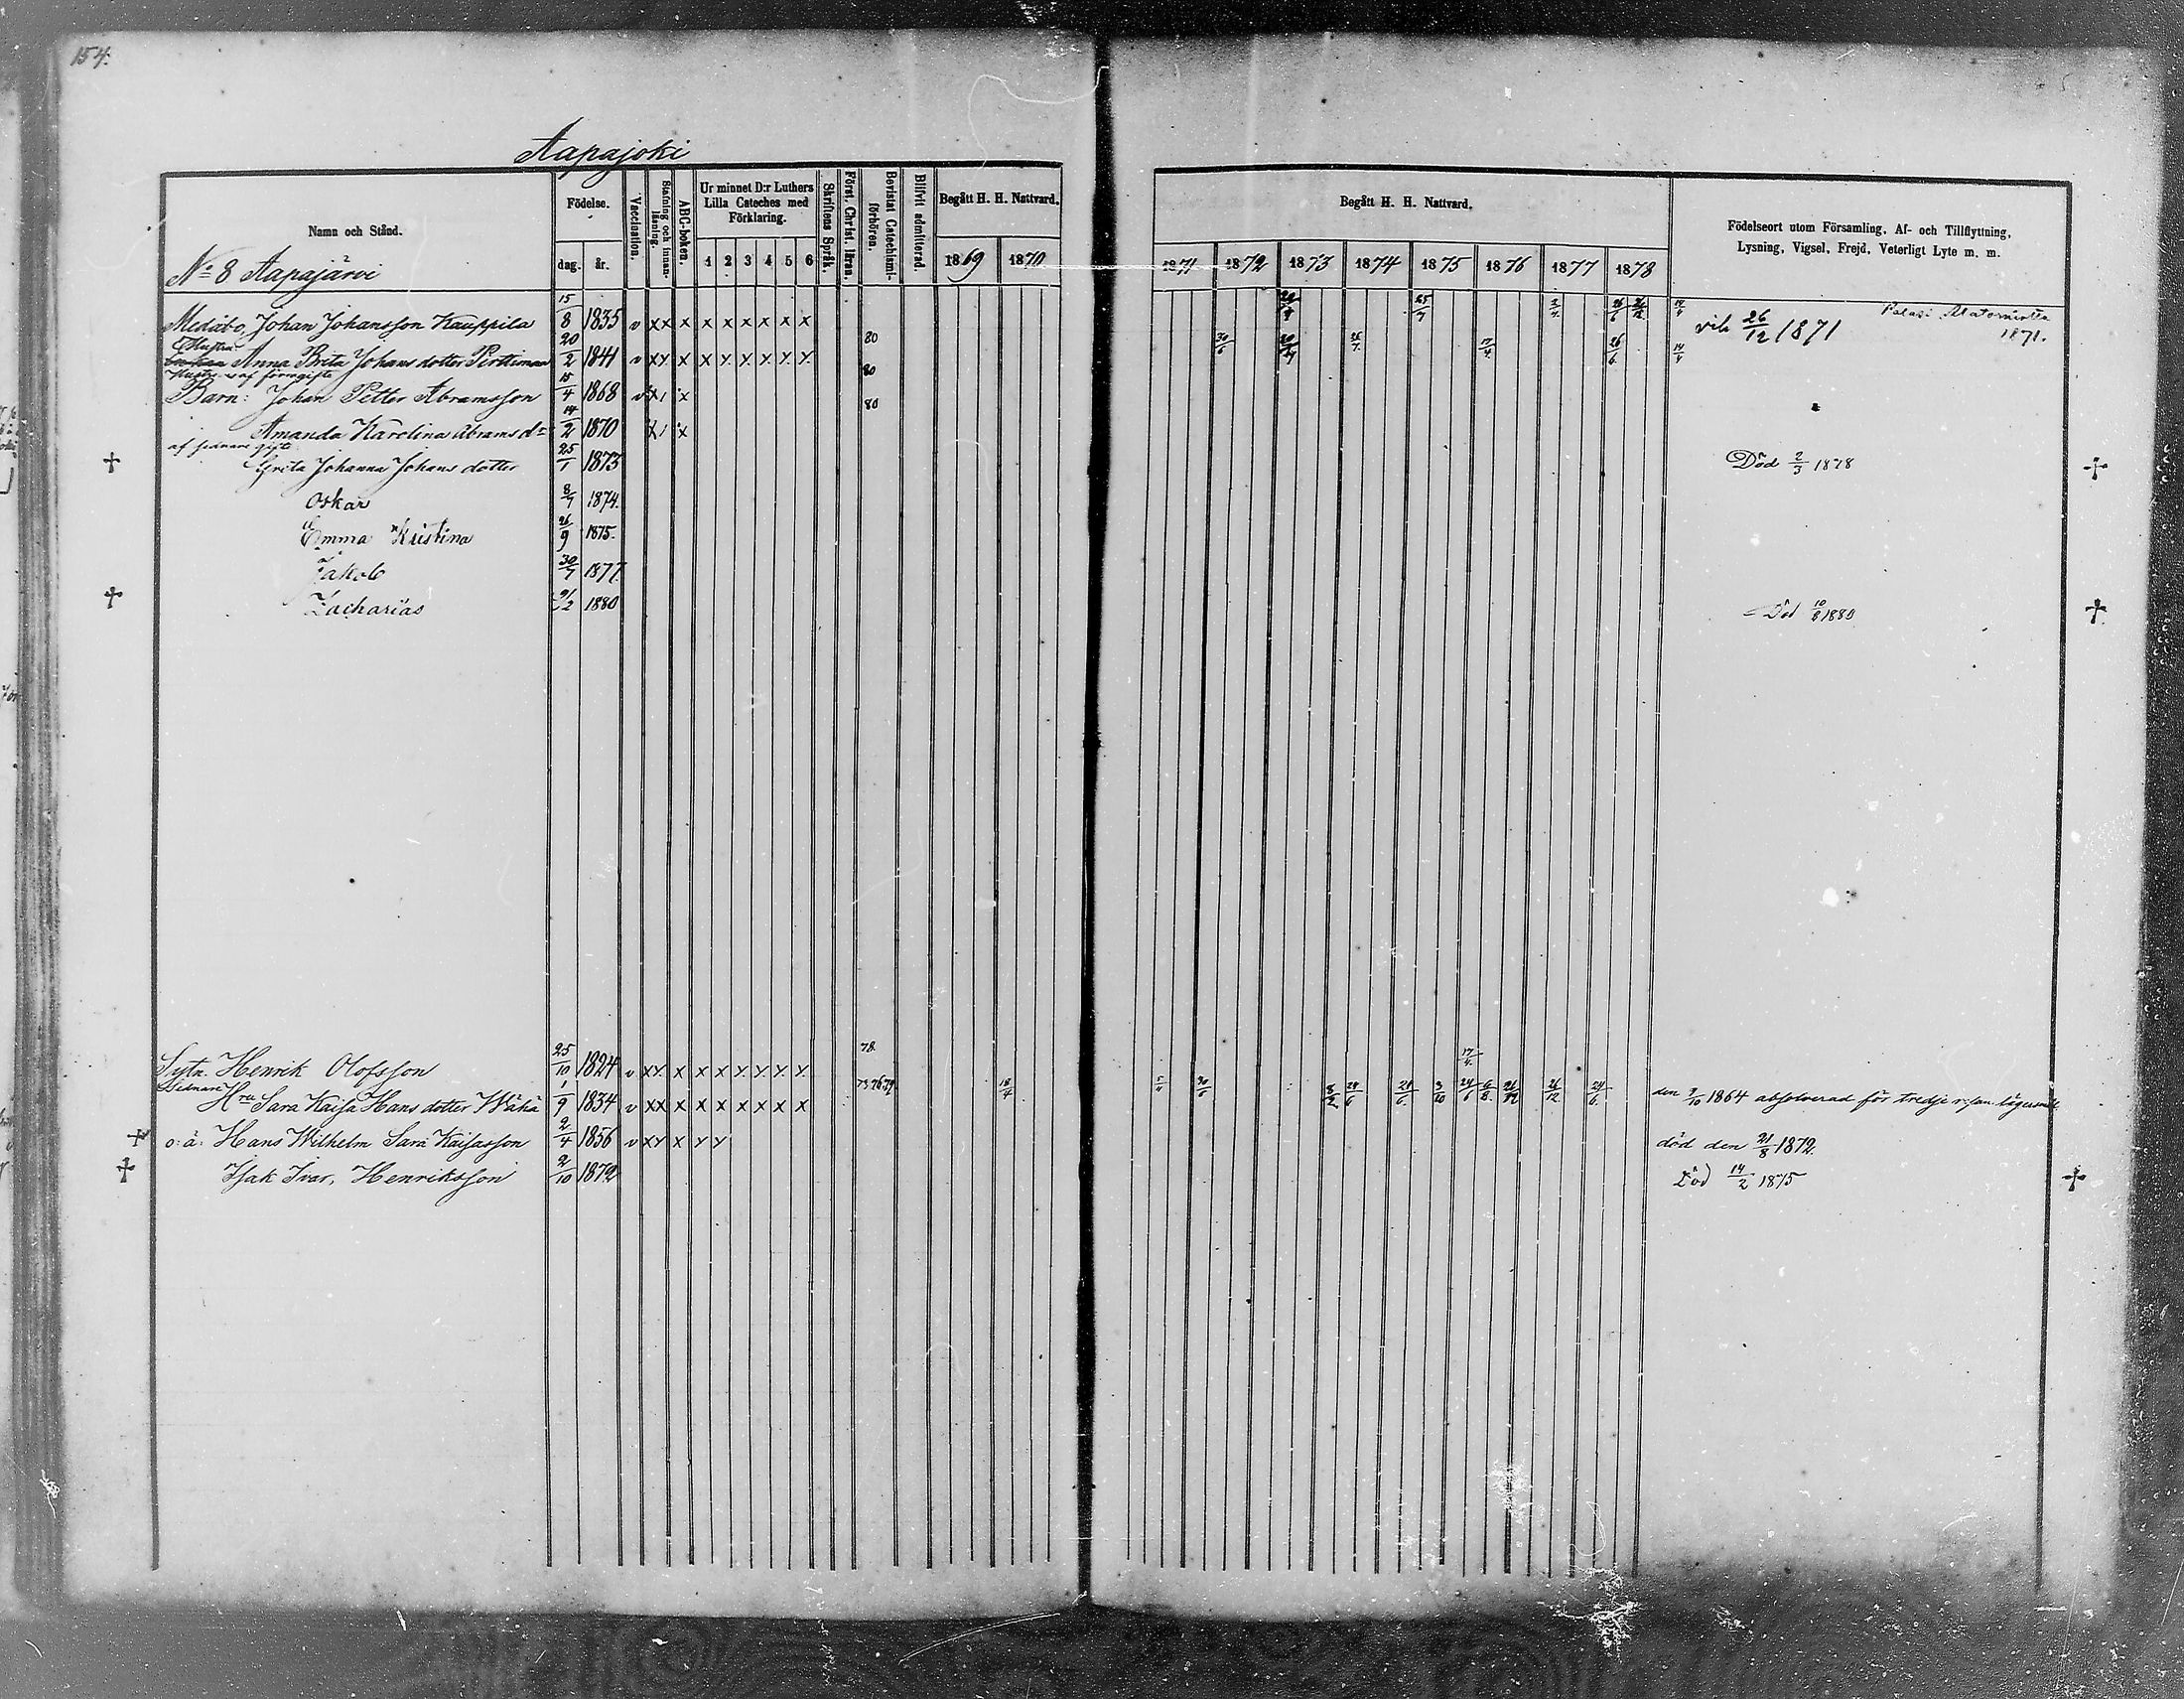 154.
Aapajoki
Namn och Stånd.
Födelse.
dag. år.
Vaccination.
Stafning och innan-läsning.
ABC-boken.
Ur minnet D:r Luthers Lilla Cateches med Förklaring.
1 2 3 4 5 6
Skriftens Språk.
Först. Christ. läran.
Bevistat Catechismi-förhören.
Blifvit admitterad.
Begått H. H. Nattvard.
1869 1870
Begått H. H. Nattvard.
1871 1872 1873 1874 1875 1876 1877 1878
Födelseort utom Församling, Af- och Tillflyttning,
Lysning, Vigsel, Frejd, Veterligt Lyte m. m.
No 8 Aapajärvi
Medåbo, Johan Johansson Kauppila 15/8 1835 v x x x x x x x x x vih 26/12 1871 1871.
Hustru
Anna Brita Johans dotter Perttiman 20/2 1841 v x x x x x x x x x 80
Hustr. af förra gifte 80
Barn: Johan Petter Abramsson 15/4 1868 v x / x 80
Amanda Karolina Abrams dr 14/2 1870 x / x
af sednare gifte
Greta Johanna Johans dotter 25/1 1873 Död 2/3 1878
Oskar 8/7 1874.
Emma Kristina 26/9 1875.
Jakob 30/7 1877.
Zacharias 21/2 1880 Död 10/8 1880
Sytn. Henrik Olofsson 25/10 1824 v x x x x x x x x x 78. 17/4.
Sednare Hru Sara Kaisa Hans dotter Wähä 1/9 1834 v x x x x x x x x x 73 76 79. den 9/10 1864 absolverad för tredje resan lägersmål
o: ä: Hans Wilhelm Sara Kaisasson 2/4 1856 v x x x x x död den 21/8 1872.
Isak Ivar, Henriksson 2/10 1872 Död 14/2 1875